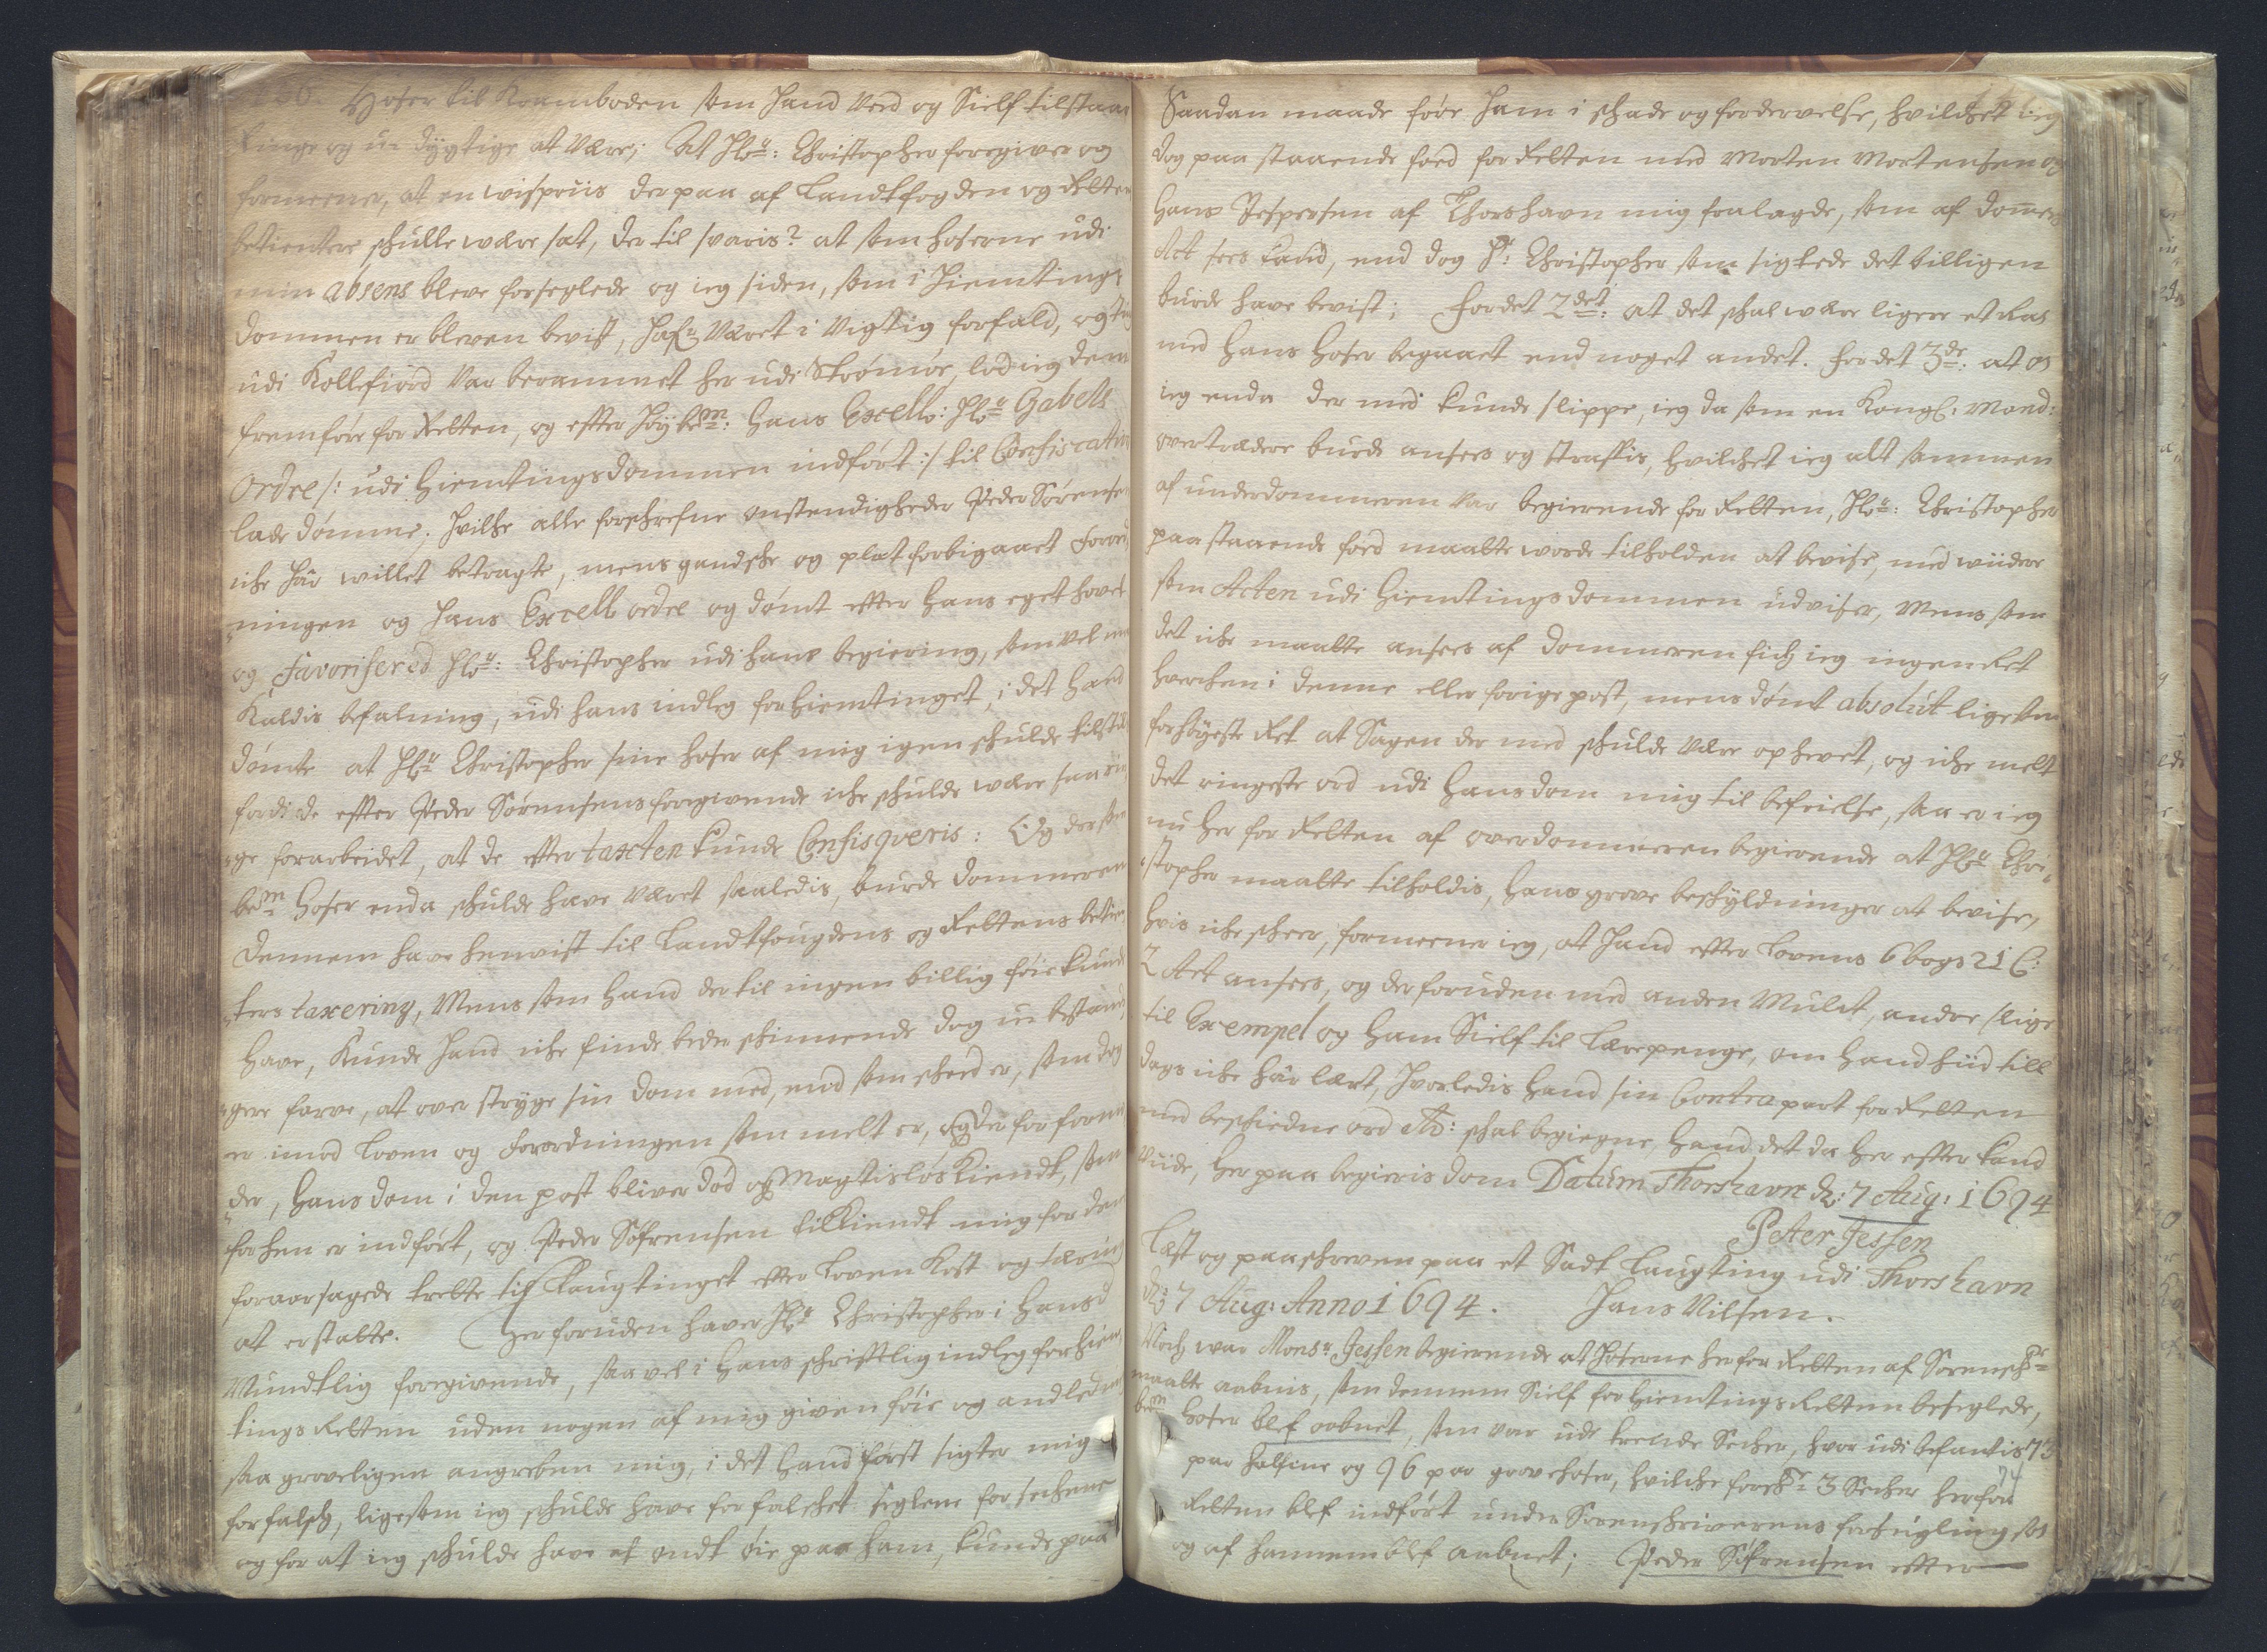 Hoser til Kramboden som hand Veed og Sielf tilstaar
Ringe og u-dygtige at være; At Hr: Christopher foregiver og
formeener, at en wisprüs der paa af Landtfogden og Rettens
betientere schulle være sat, der til svaris? at som hoserne udi
min absens bleve forseglede og ieg siden, som i Hiemtings
Dommen er bleven bevist, hafr Været i Vigtig forfald, og ting
udi Kollefiord Var berammet her udi Strømøe, lod ieg dem
fremføre for Retten, og efter Høybem: Hans Excell: Hr Gabels
Ordre /: udi Hiemtingsdommen indført :/ til Confiscation
lade dømme; hvilche alle forschrefne omstendigheder Peder Sørensen
iche har willet betragte, mens gandsche og plat forbigaaet Forord
"ningen og hans Excell ordre og dømt efter hans eget hovet
og Favorisered Hr: Christopher udi hans begiering, som vel maa
Kaldis befalning, udi hans indleg for Hiemtinget, i det hand
dømte at Hr Christopher sine hoser af mig igen schulde tilstill
fordi de efter Peder Sørensens foregivende iche schulde være saa rin
"ge forarbeidet, at de efter taxten kunde Confisqveris: Og der som
bem Hoser enda schulde have Været saaledis, burde Dommeren
Dennem have henvist til Landtfougdens og Rettens betien
"ters taxering, Mens som hand der til ingen billig føie kunde
Have, Kunde hand iche finde beder schinnende dog u-bestan
"gere farve, at over stryge sin dom med, end som scheed er, som dog
er imod Loven og Forordningen som melt er, og der for forme
"der, Hans dom i den post bliver død og Magtisløs Kiendt, som
forhen er indført, og Peder Søfrensen tilkiendt mig for den
foraarsagede trette til Laugtinget efter Loven Kost og tæring
at erstatte. Her foruden haver Hr Christopher i Hans
Mundtlig foregivende, saa vel i Hans schriftlig indleg for hiem
tings Retten uden nogen af mig given føie og andledning
saa groveligen angreben mig, i det Hand først sigter mig
for falsch, ligesom ieg schulde have forfalschet seglene for sechene
og for at ieg schulde have et ondt øie paa ham, kunde paa
Saadan maade føre ham i schade og fordervelse, hvilchet ieg
dog paa staaende foed for Retten med Morten Mortensen og
Hans Jespersen af Thorshavn mig fralagde, som af dommens
Act sees kand, end dog Hr: Christopher som sigtede det billigen
burde have bevist; For det 2det: at det schal være ligere et Ras
med Hans Hoser begaaet end noget andet. For det 3de: at om
ieg enda der med kunde slippe, ieg da som en Kongl: Mand:
overtrædere burde ansees og straffis, hvilchet ieg alt sammen
af underdommeren var begierende for Retten, Hr: Christopher
paa staaende foed maatte worde tilholden at bevise, med wiidere
som Acten udi Hiemtings dommen udviser, Mens som
det iche maatte ansees af Dommeren fich ieg ingen Ret
hverchen i denne eller forige post, mens dømt absolut ligesom
for høyeste Ret at Sagen der med schulde Være ophevet, og iche melt
det ringeste ord udi Hans dom mig til befrielse, saa er ieg
nu her for Retten af overdommeren begierende at Hr Chri"
"stopher maatte tilholdis, Hans grove beschyldninger at bevise,
hvis iche scheer, formeener ieg, at Hand efter Lovens 6 bogs 21 C:
2 Art ansees, og der foruden med anden Mulct, andre slige
til Exempel og ham Sielf til Lærepenge, om Hand hiid till
dags iche har lært, hvorledis Hand sin Contrapart for Retten
med beschiedne ord etc: schal begiegne, Hand det da her efter kand
viide, her paa begieris dom Datum Thorshavn d: 7 Aug: 1694
Peter Jessen
Læst og paaschreven paa et Sadt Laugting udi Thorshavn
d: 7 Aug: Anno 1694. Jans Nilsen.
Noch war Monsr Jessen begierende at hoserne her for Retten af Sorenschr
maatte aabnis, som dennem Sielf for Hiemtings Retten beseglede,
bem Hoser blef aabnet, som var udi trende Secher, hvor udi befantis 73
par halfine og 96 par grove hoser, hvilche forschr 3 Secher her for
Retten blef indført under Sorenschriverens forsegling som
og af hannem blef aabnet; Peder Søfrensen efter